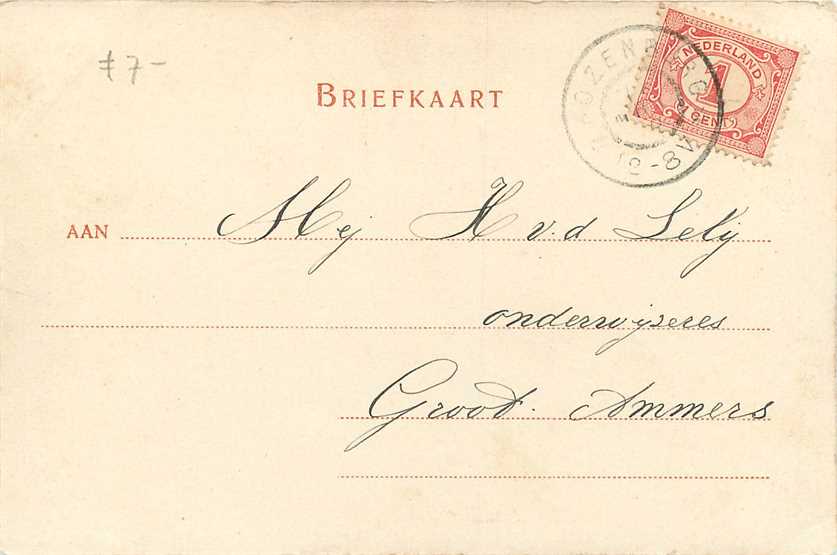 ƒ 7-
BRIEFKAART
NEDERLAND
1
1 CENT
ROZENBURG
8-12V
AAN Mej H v.d Lely
onderwijzeres
Groot. Ammers